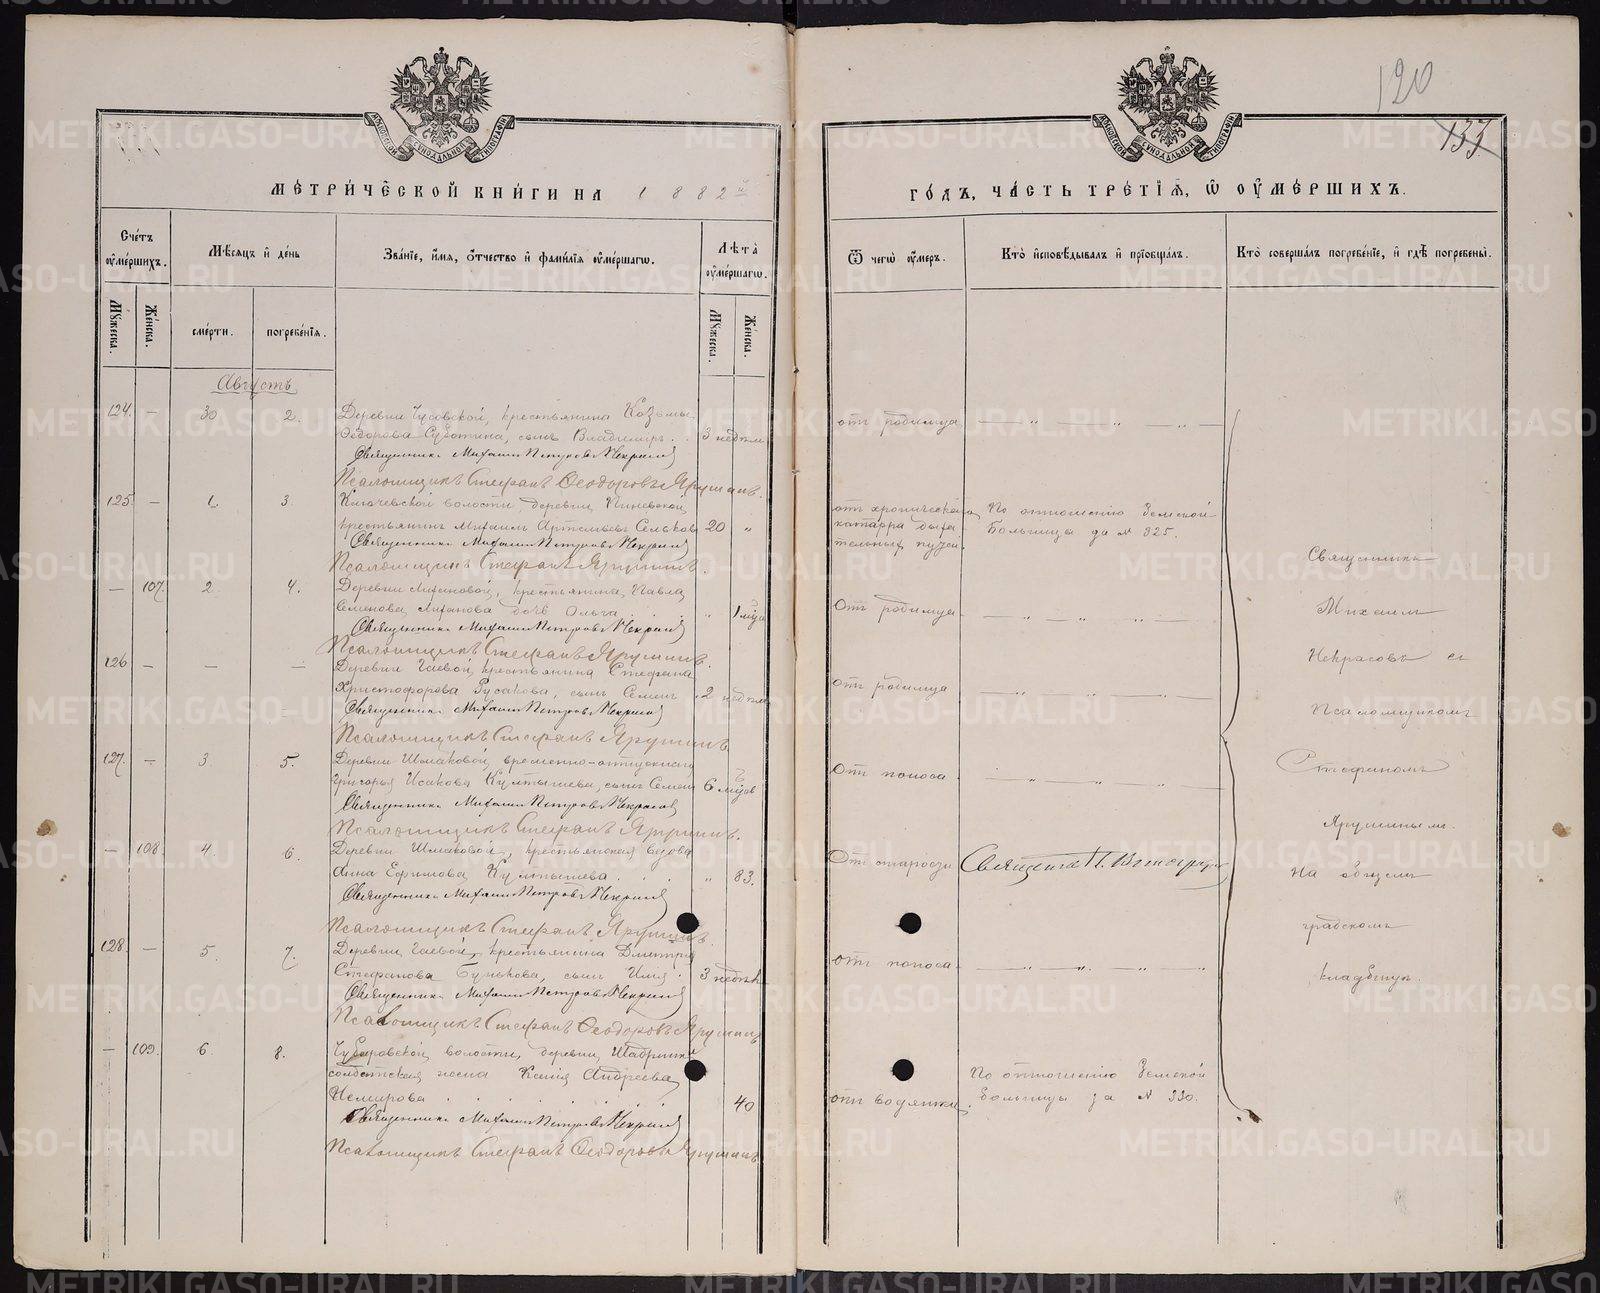 120
137
МОСКОВСКОЙ СѴНОДАЛЬНОЙ ТИПОГРАФІИ
МОСКОВСКОЙ СѴНОДАЛЬНОЙ ТИПОГРАФІИ
МЕТРИЧЕСКОЙ КНИГИ НА 1882й
ГОДЪ, ЧАСТЬ ТРЕТІѦ, Ѡ ОУМЕРШИХЪ.
Счетъ оумершихъ.
Мѣсяцъ и день
Званіе, имя, отчество и фамилія оумершагѡ.
Лѣта оумершагѡ.
Ѿ чегѡ оумеръ.
Кто исповѣдывалъ и пріобщалъ.
Кто совершалъ погребеніе, и гдѣ погребены.
Мꙋжеска.
Женска.
смерти.
погребенія.
Мꙋжеска.
Женска.
Августъ
124. — 30 2. Деревни Чусовской, крестьянина Козьмы
Ѳедорова Суботина, сынъ Владимиръ. 3 недѣли отъ родимца
Священникъ Михаилъ Петровъ Некрасовъ
Псаломщикъ Стефанъ Ѳеодоровъ Ярушинъ.
125. — 1. 3. волости, деревни
крестьянинъ Михаилъ Артемьевъ 20 „ отъ хроническаго катарра дыхательныхъ путей. По отношенію Земской
Больницы за № 325.
Священникъ Михаилъ Петровъ Некрасовъ
Псаломщикъ Стефанъ Ярушинъ.
— 107. 2. 4. Деревни крестьянина Павла
Семенова дочь Ольга „ 1 мѣсяца отъ родимца
Священникъ Михаилъ Петровъ Некрасовъ
Псаломщикъ Стефанъ Ярушинъ.
126 — — — Деревни Гаевой, крестьянина Стефана
Христофорова Русакова, сынъ Семенъ 2 недѣли отъ родимца
Священникъ Михаилъ Петровъ Некрасовъ
Псаломщикъ Стефанъ Ярушинъ.
127. — 3. 5. Деревни Шмаковой, временно-отпускнаго
Григорья Исакова Култышева, сынъ Семенъ 6 мѣсяцовъ отъ поноса
Священникъ Михаилъ Петровъ Некрасовъ
Псаломщикъ Стефанъ Ярушинъ.
— 108. 4. 6. Деревни Шмаковой, крестьянская вдова
Анна Ефимова Култышева. „ 83. Отъ старости Священникъ П.
Священникъ Михаилъ Петровъ Некрасовъ
Псаломщикъ Стефанъ Ярушинъ.
128. — 5. 7. Деревни Гаевой, крестьянина Дмитрія
Стефанова Бунькова, сынъ Илья. 3 недѣли отъ поноса
Священникъ Михаилъ Петровъ Некрасовъ
Псаломщикъ Стефанъ Ѳеодоровъ Ярушинъ
— 109. 6. 8. Чубаровской волости, деревни
солдатская жена Ксенія Андреева
Немирова 40 отъ водянки. По отношенію Земской
Больницы за № 330.
Священникъ Михаилъ Петровъ Некрасовъ
Псаломщикъ Стефанъ Ѳеодоровъ Ярушинъ
Священникъ
Михаилъ
Некрасовъ съ
Псаломщикомъ
Стефаномъ
Ярушинымъ.
На общемъ
градскомъ
кладбищѣ.
METRIKI.GASO-URAL.RU